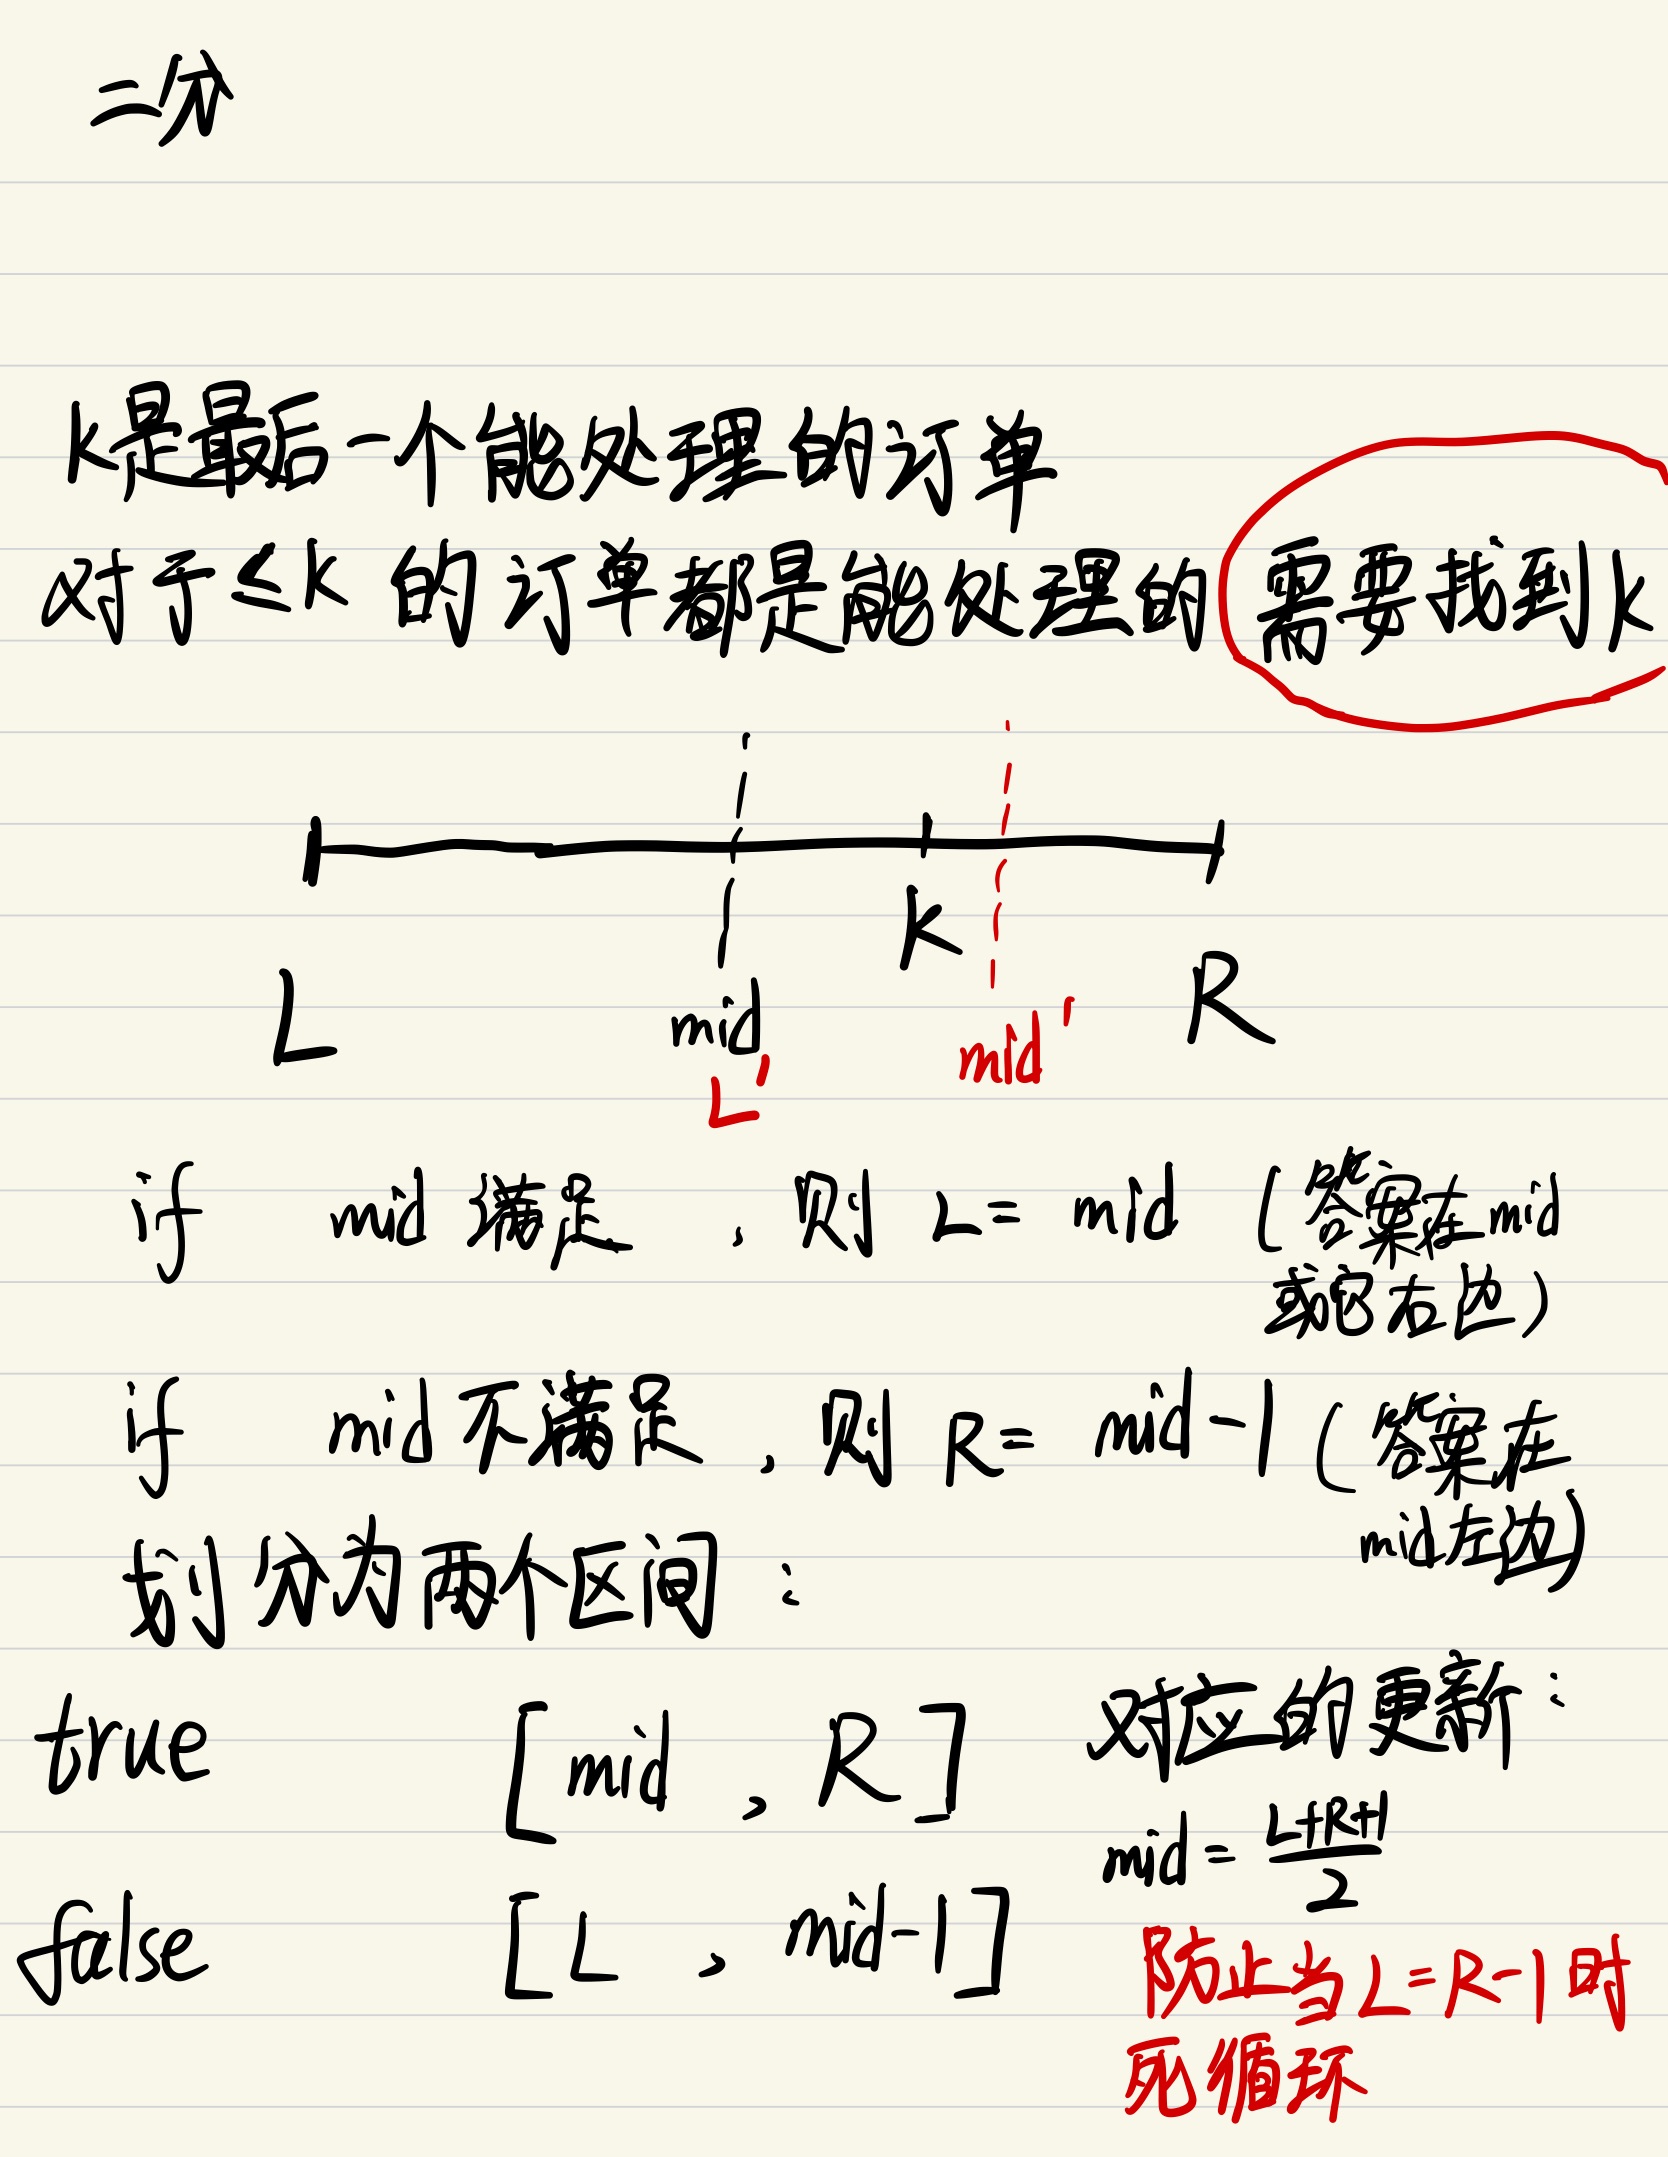 二分
k是最后一个能处理的订单
对于≤k的订单都是能处理的 需要找到k
k
L mid R
L' mid'
if mid满足，则 L= mid (答案在mid
或它右边)
if mid不满足，则 R= mid-1 (答案在
mid左边)
划分为两个区间：
true [mid , R]
false [L , mid-1]
对应的更新：
mid = \frac{L+R+1}{2}
防止当L=R-1时
死循环